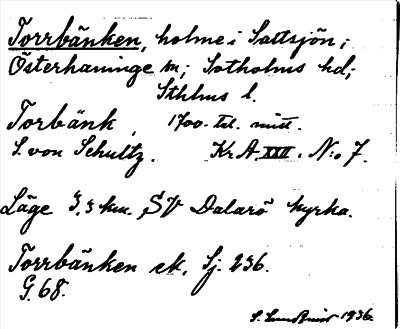 Torrbänken, holme i Saltsjön;
Österhaninge sn; Sotholms hd;
Sthlms l.
Torbänk, 1700-tal. mitt.
S. von Schultz. Kr.A. XXII. N:o 7.
Läge 3,3 km. SV Dalarö kyrka.
Torrbänken ek. Sj. 236.
G. 68.
1936